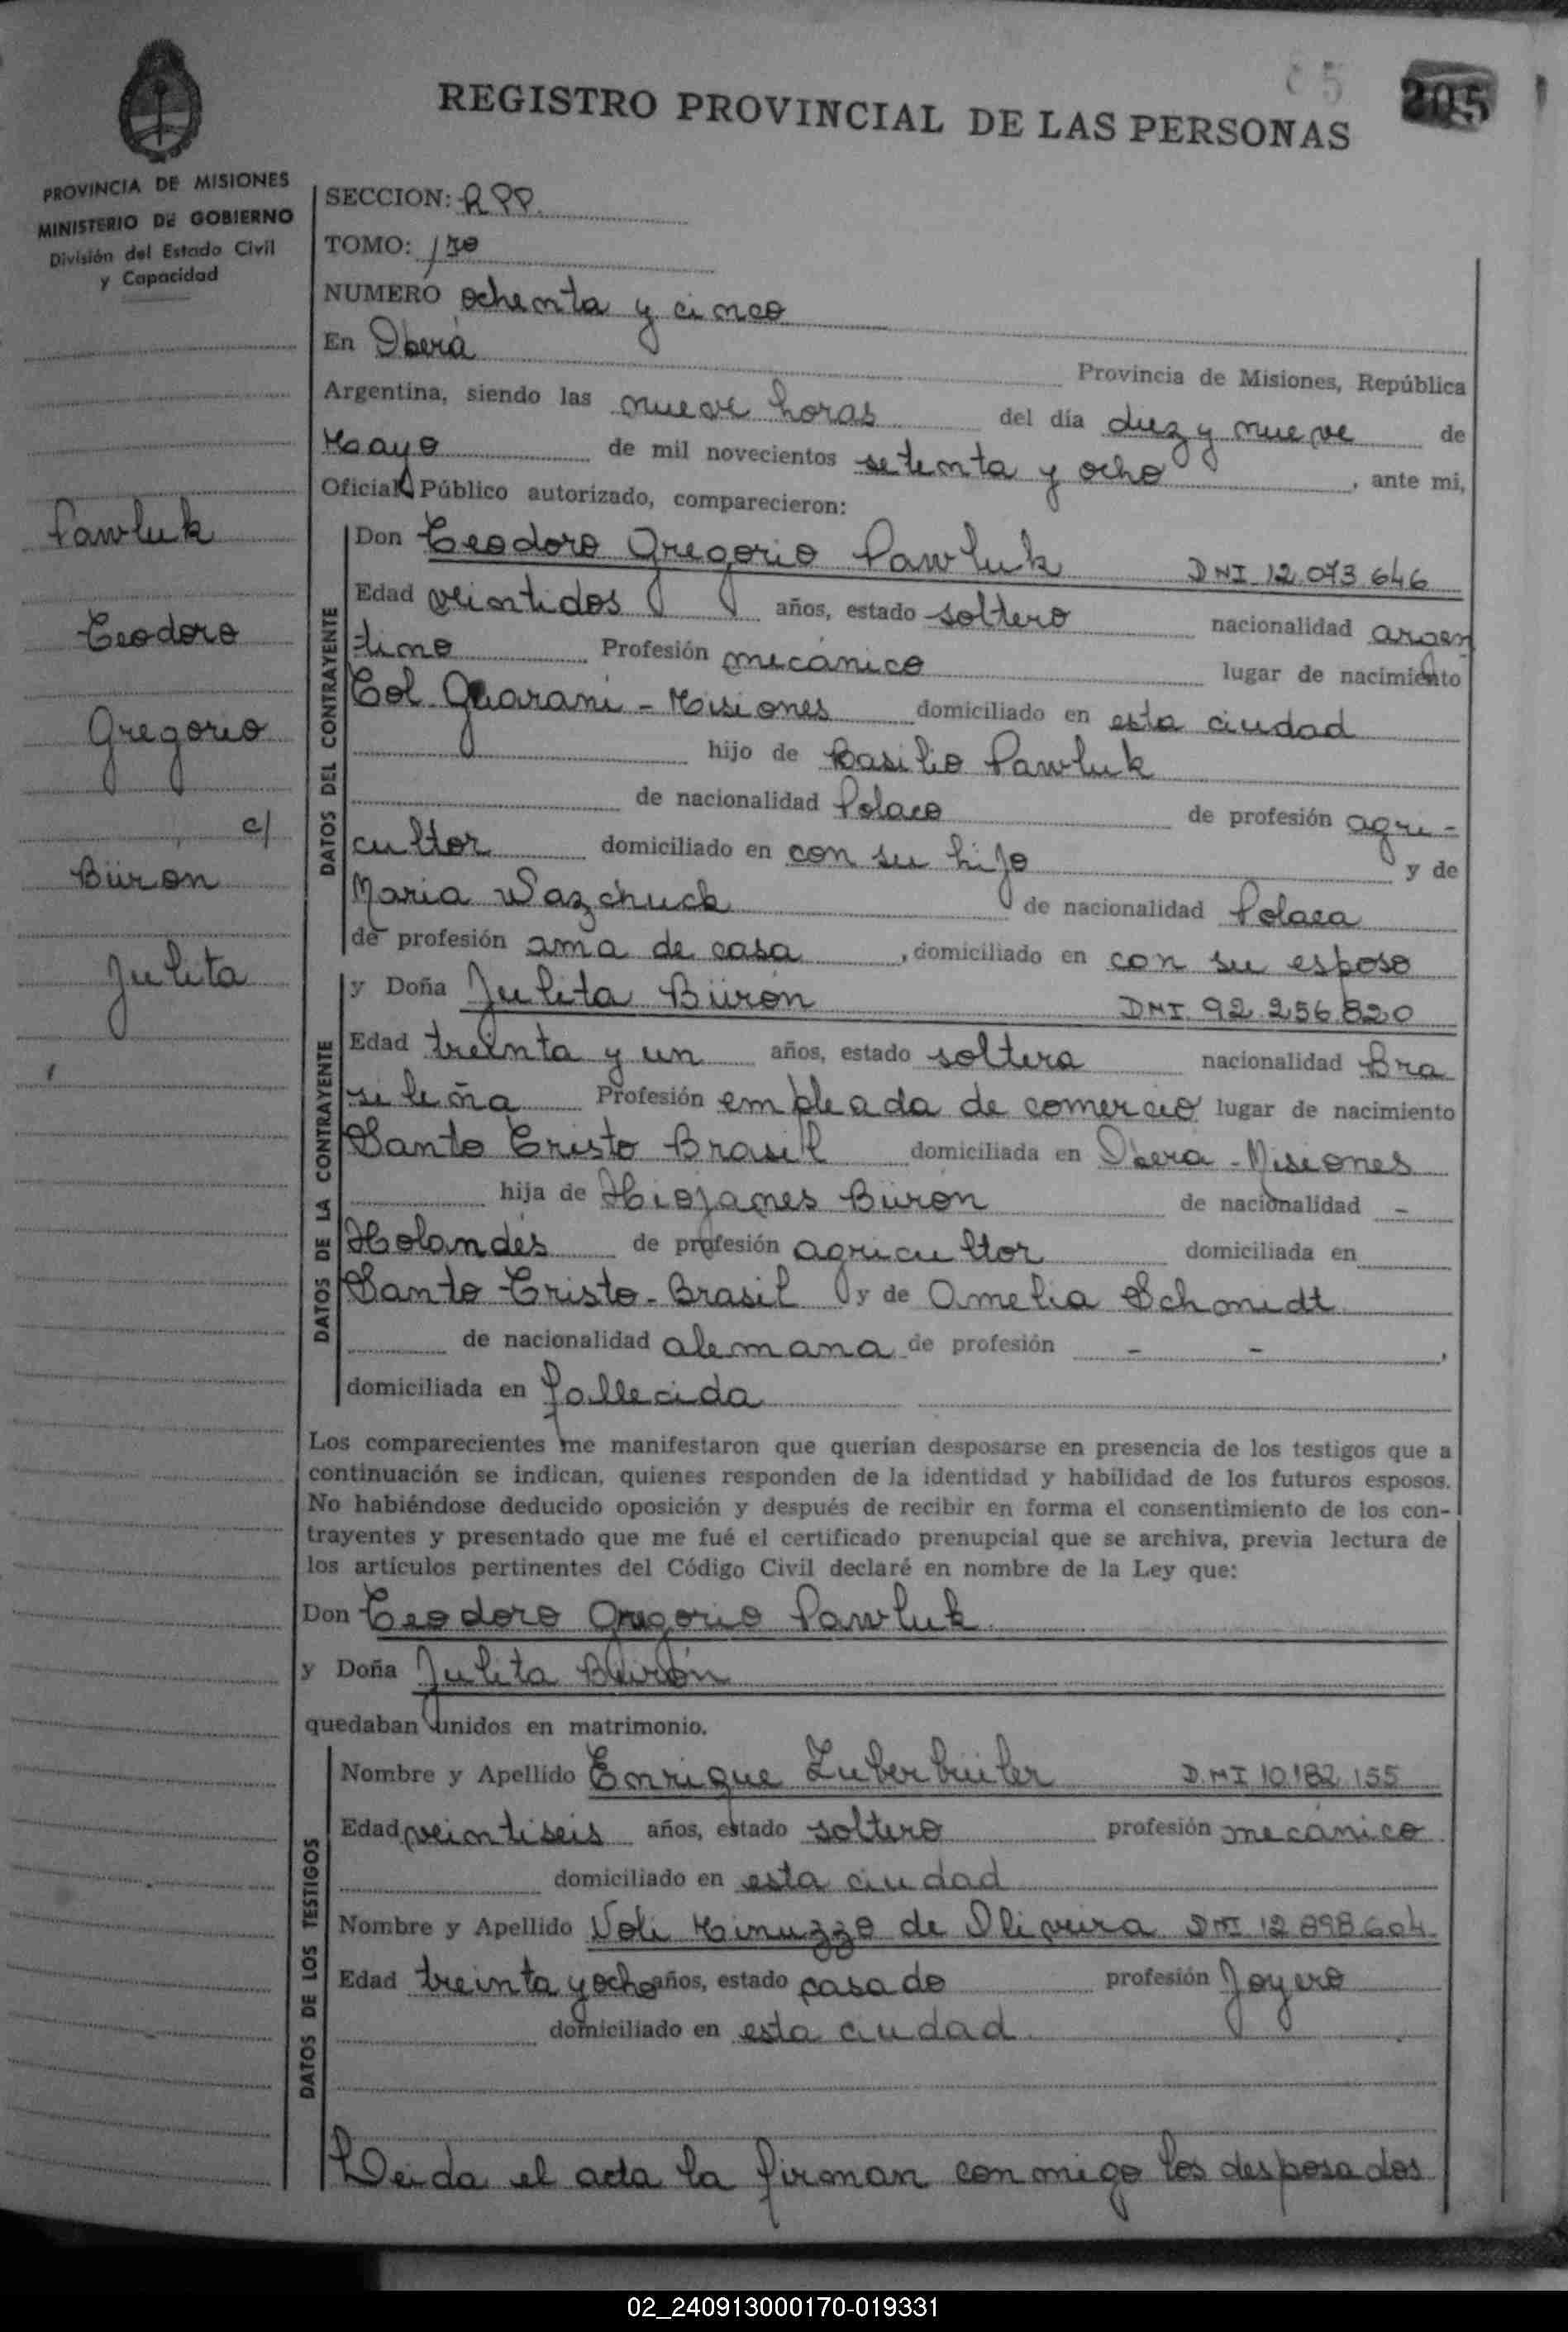 REGISTRO PROVINCIAL DE LAS PERSONAS
205
PROVINCIA DE MISIONES
MINISTERIO DE GOBIERNO
División del Estado Civil
y Capacidad
Pawluk
Teodoro
Gregorio
c/
Büron
Julita
SECCION: RPP.
TOMO: 1ro
NUMERO ochenta y cinco
En Oberá Provincia de Misiones, República
Argentina, siendo las nueve horas del día diez y nueve de
Mayo de mil novecientos setenta y ocho, ante mi,
Oficial Público autorizado, comparecieron:
DATOS DEL CONTRAYENTE
Don Teodoro Gregorio Pawluk DNI 12.073.646
Edad veintidos años, estado soltero nacionalidad argen
tino Profesión mecánico lugar de nacimiento
Col. Guaraní - Misiones domiciliado en esta ciudad
hijo de Basilio Pawluk
de nacionalidad Polaco de profesión agri-
cultor domiciliado en con su hijo y de
Maria Wazchuck de nacionalidad Polaca
de profesión ama de casa, domiciliado en con su esposo
DATOS DE LA CONTRAYENTE
y Doña Julita Büron DNI 92.256.820
Edad treinta y un años, estado soltera nacionalidad Bra
sileña Profesión empleada de comercio lugar de nacimiento
Santo Cristo Brasil domiciliada en Oberá - Misiones
hija de Büron de nacionalidad -
Holandés de profesión agricultor domiciliada en
Santo Cristo - Brasil y de Amelia Schmidt
de nacionalidad alemana de profesión - - ,
domiciliada en fallecida
Los comparecientes me manifestaron que querían desposarse en presencia de los testigos que a
continuación se indican, quienes responden de la identidad y habilidad de los futuros esposos.
No habiéndose deducido oposición y después de recibir en forma el consentimiento de los con-
trayentes y presentado que me fué el certificado prenupcial que se archiva, previa lectura de
los artículos pertinentes del Código Civil declaré en nombre de la Ley que:
Don Teodoro Gregorio Pawluk
y Doña Julita Büron
quedaban unidos en matrimonio.
DATOS DE LOS TESTIGOS
Nombre y Apellido Enrique Zuberbüiler D.NI 10.182.155
Edad veintiseis años, estado soltero profesión mecánico
domiciliado en esta ciudad
Nombre y Apellido Voli Minuzzo de Oliveira DNI 12.898.604
Edad treinta y ocho años, estado casado profesión Joyero
domiciliado en esta ciudad
Leida el acta la firman conmigo los desposados
02_240913000170-019331